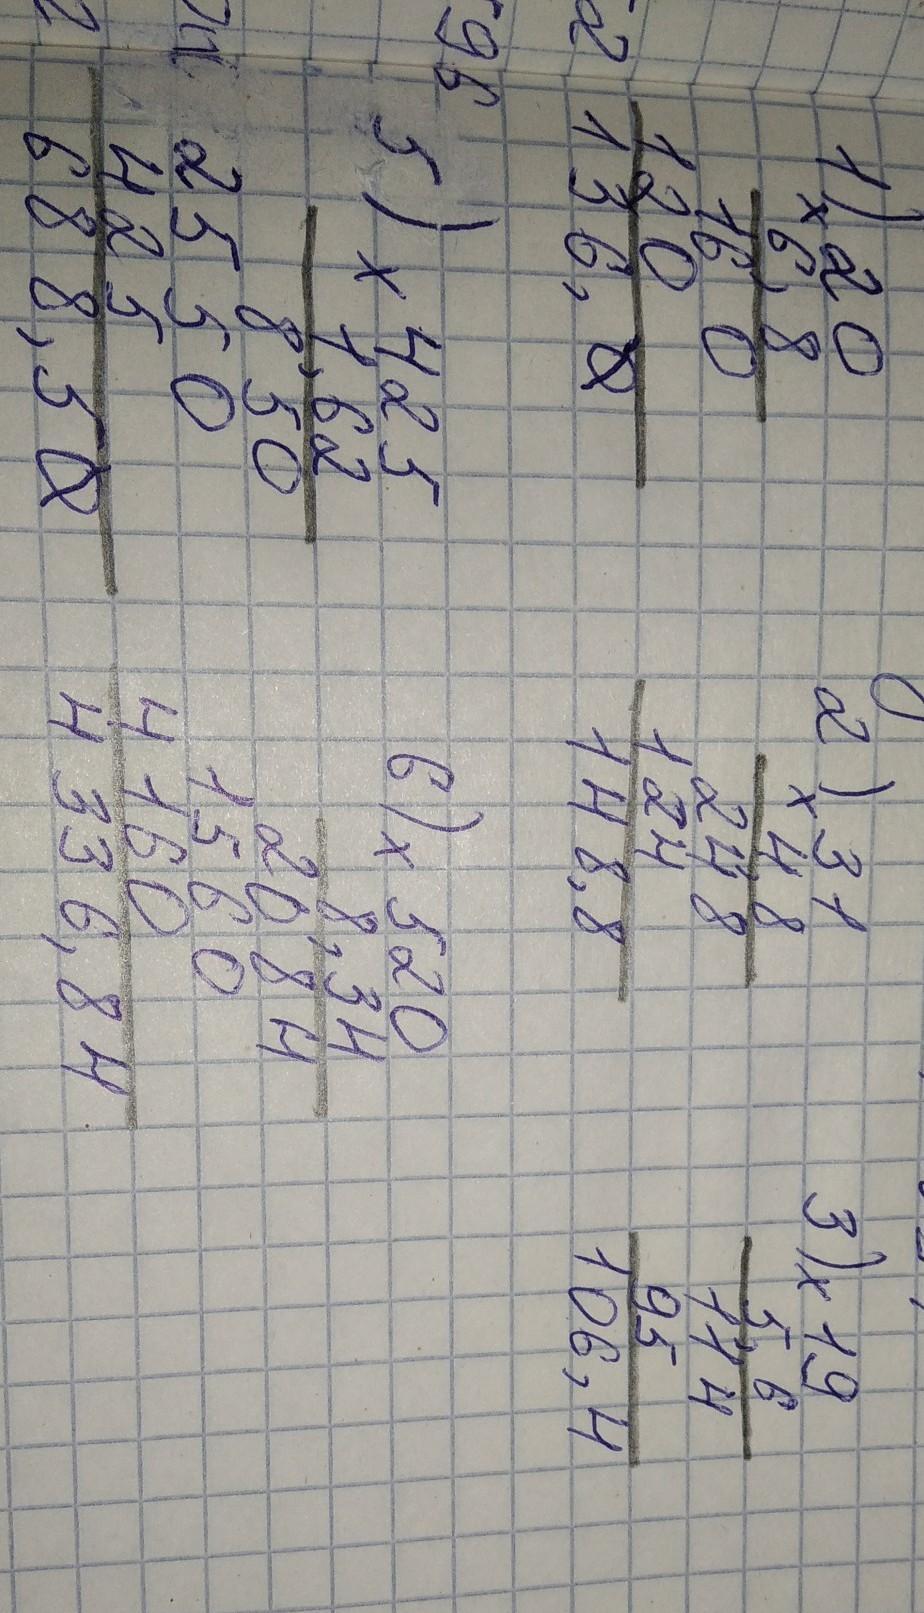 1) 20
× 6,8
16 0
120
136,0
2) 31
× 4,8
24 8
124
148,8
3) × 19
5 6
114
95
106,4
5) × 425
1,62
8 50
255 0
425
688,50
6) × 520
8,34
2084
1560
4160
4336,84